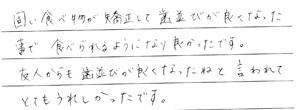 固い食べ物が矯正して歯並びが良くなった
事で食べられるようになり良かったです。
友人からも歯並びが良くなったねと言われて
とてもうれしかったです。